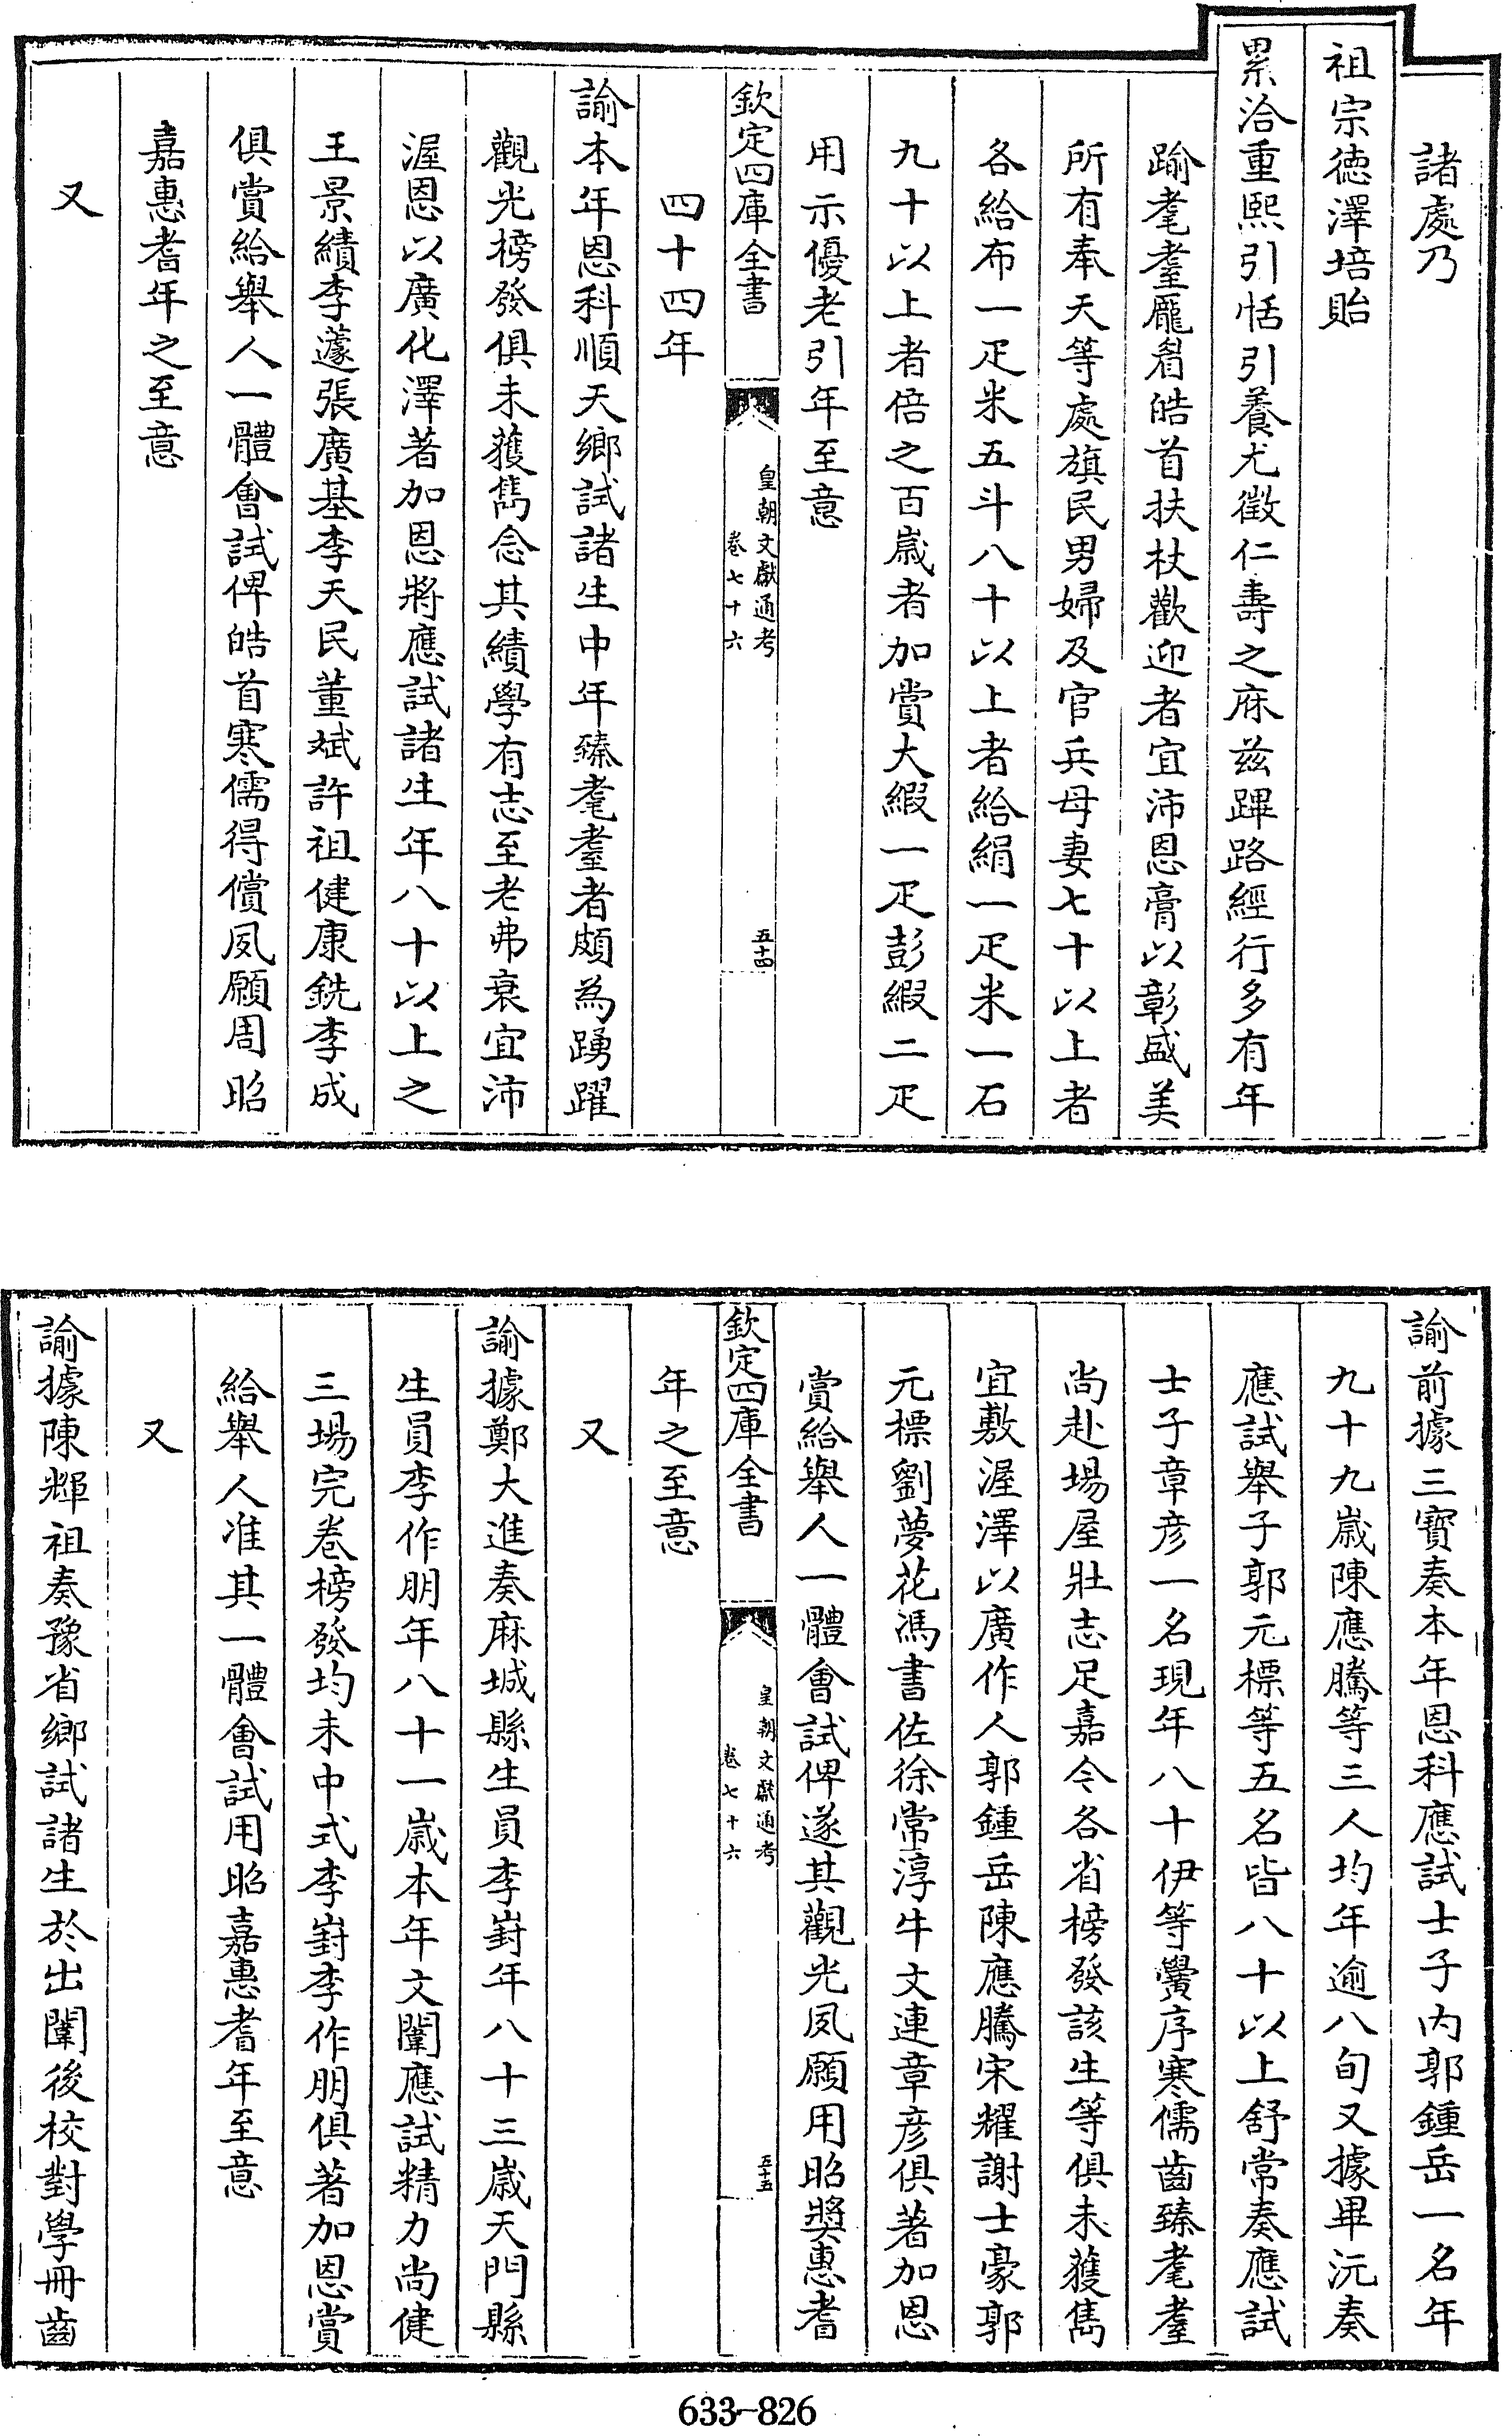 諸處乃
祖宗徳澤培貽
累洽重熙引恬引養尤徵仁壽之庥兹蹕路經行多有年
踰耄耋龎眉皓首扶杖歡迎者宜沛恩膏以彰盛美
所有奉天等處旗民男婦及官兵母妻七十以上者
各給布一疋米五斗八十以上者給絹一疋米一石
九十以上者倍之百歲者加賞大緞一疋彭緞二疋
用示優老引年至意
欽定四庫全書
皇朝文獻通考
卷七十六
五十四
四十四年
諭本年恩科順天鄉試諸生中年臻耄耋者頗為踴躍
觀光榜發俱未獲雋念其績學有志至老弗衰宜沛
渥恩以廣化澤著加恩將應試諸生年八十以上之
王景績李蘧張廣基李天民董斌許祖健康銑李成
俱賞給舉人一體會試俾皓首寒儒得償夙願周昭
嘉惠耆年之至意
又
諭前據三寶奏本年恩科應試士子内郭鍾岳一名年
九十九歲陳應騰等三人均年逾八旬又據畢沅奏
應試舉子郭元標等五名皆八十以上舒常奏應試
士子章彦一名現年八十伊等黌序寒儒齒臻耄耋
尚赴場屋壯志足嘉今各省榜發該生等俱未獲雋
宜敷渥澤以廣作人郭鍾岳陳應騰宋耀謝士豪郭
元標劉夢花馮書佐徐常淳牛文連章彦俱著加恩
賞給舉人一體會試俾遂其觀光夙願用昭奬惠耆
欽定四庫全書
皇朝文獻通考
卷七十六
五十五
年之至意
又
諭據鄭大進奏麻城縣生員李崶年八十三歲天門縣
生員李作朋年八十一歲本年文闈應試精力尚健
三場完卷榜發均未中式李崶李作朋俱著加恩賞
給舉人准其一體會試用昭嘉惠耆年至意
又
諭據陳輝祖奏豫省鄉試諸生於出闈後校對學冊齒
633-826